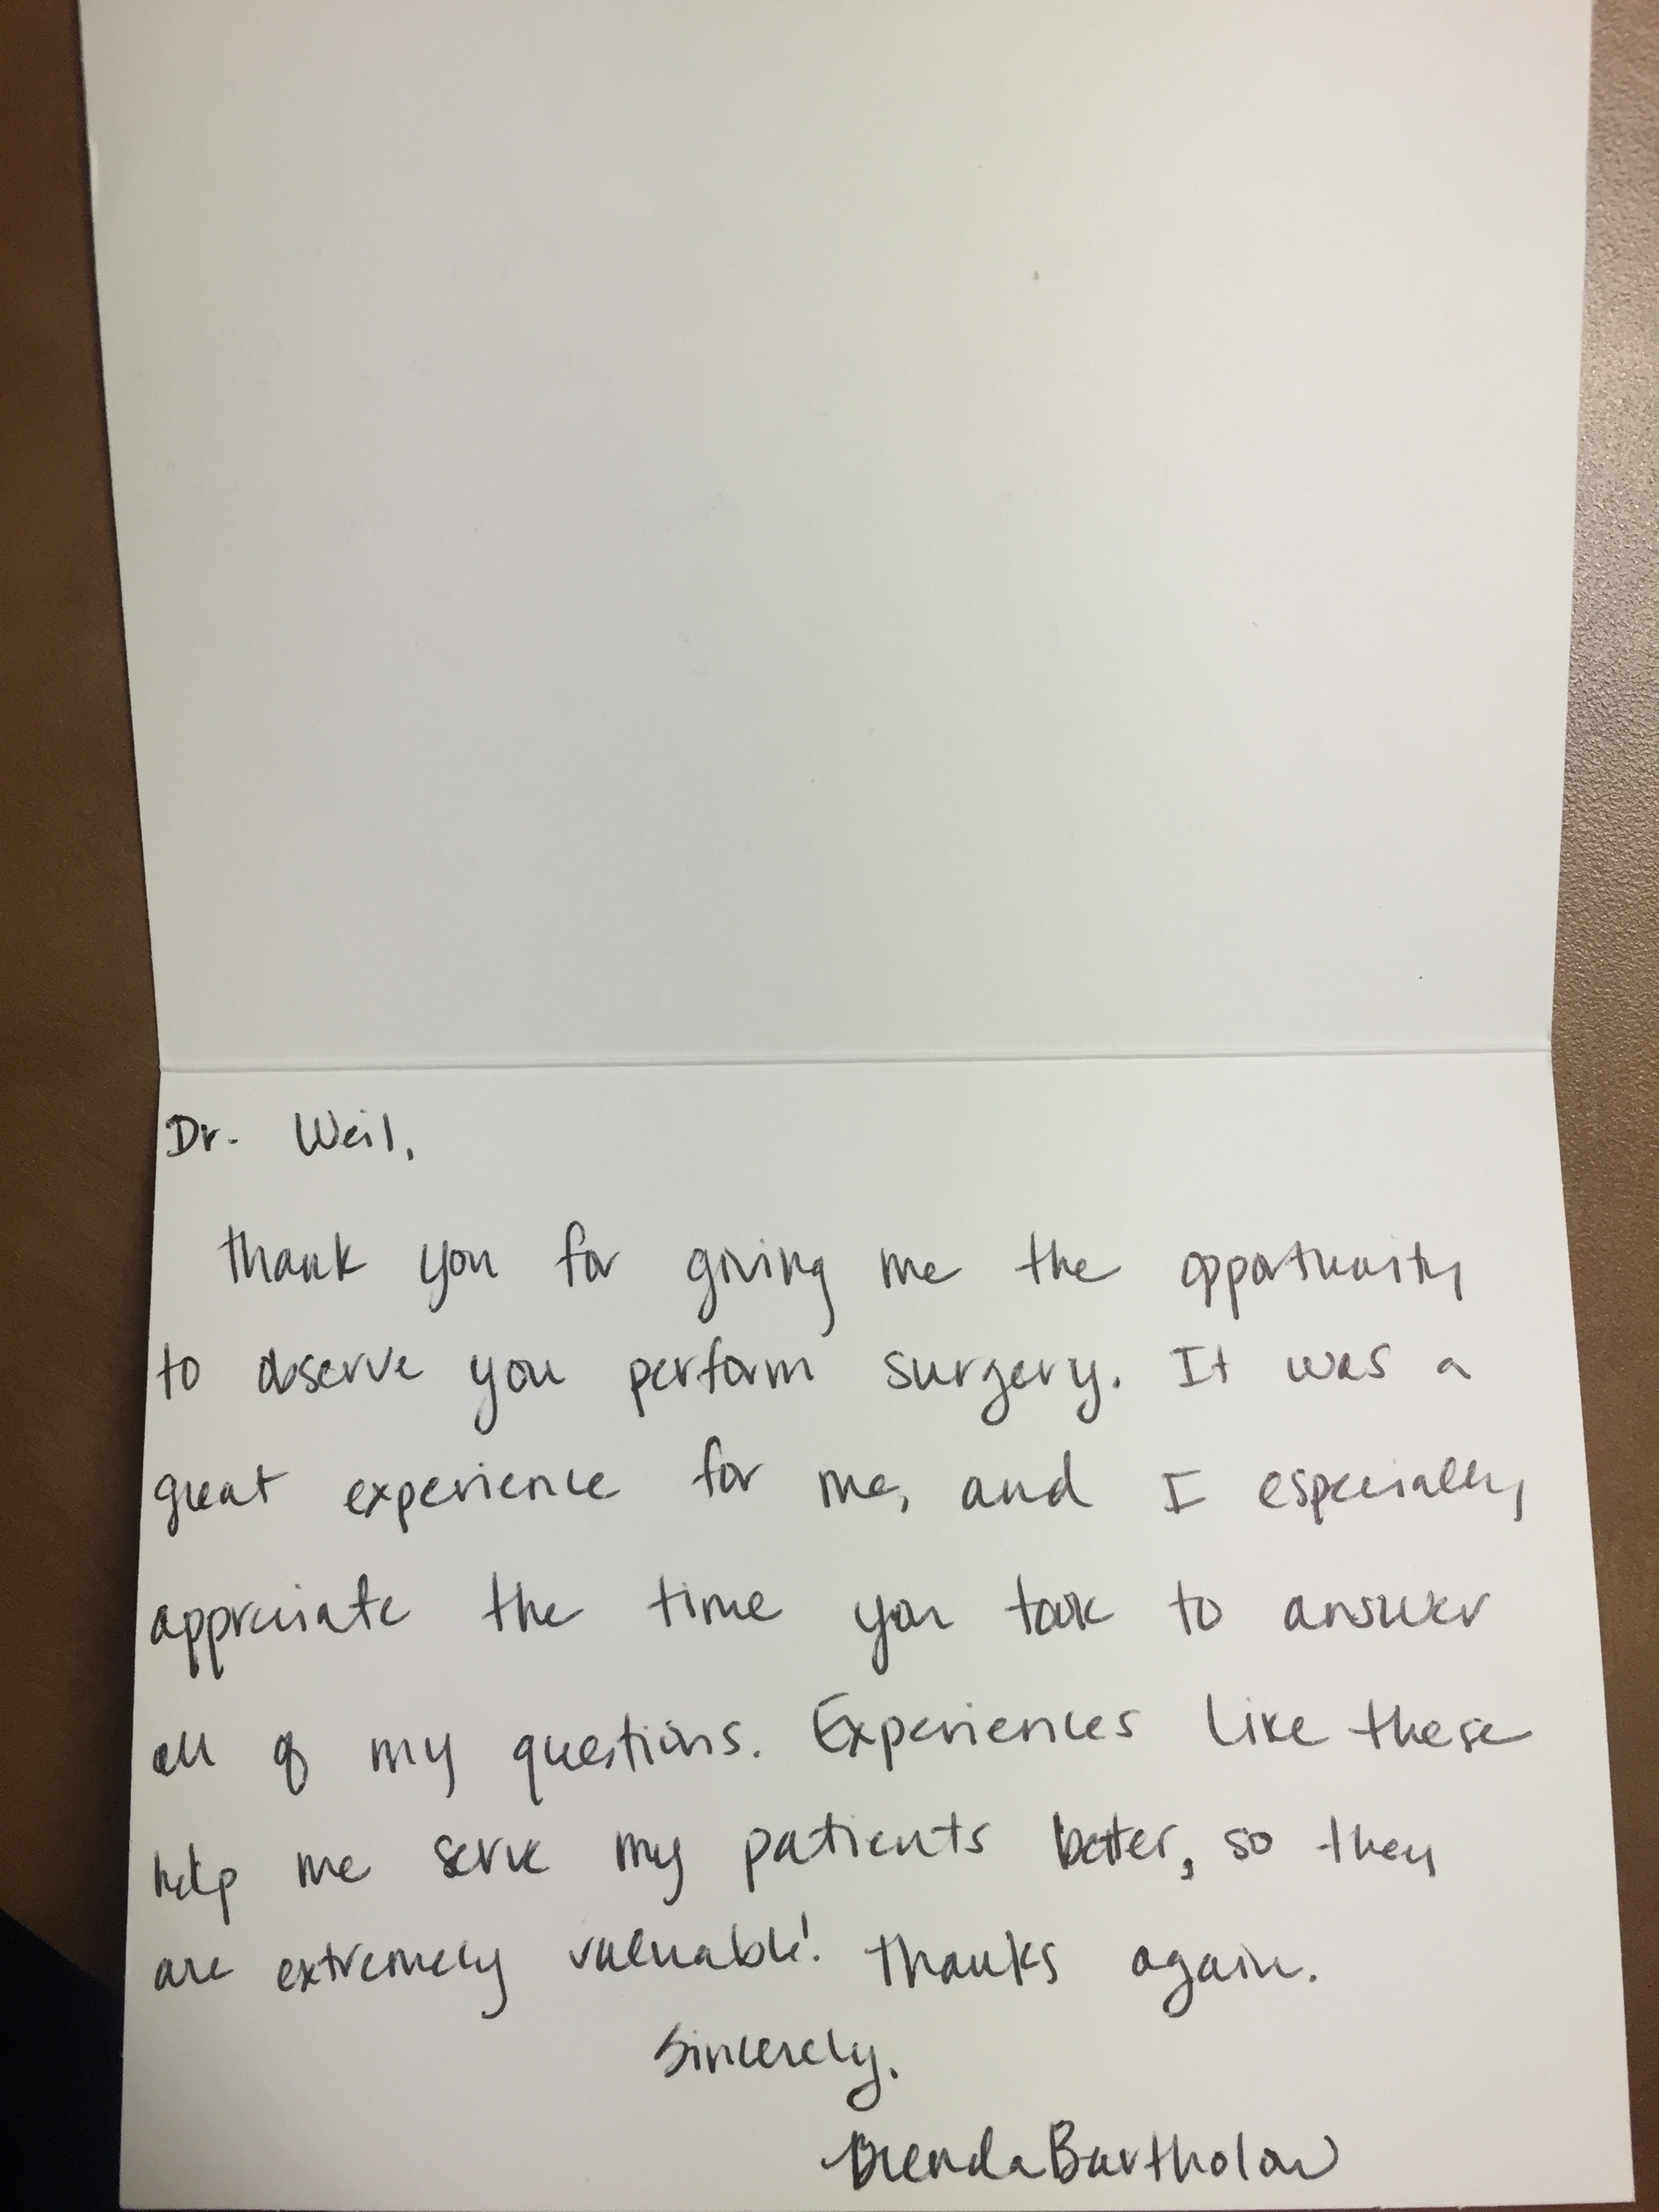 Dr. Weil,
Thank you for giving me the opportunity
to observe you perform surgery. It was a
great experience for me, and I especially
appreciate the time you took to answer
all of my questions. Experiences like these
help me serve my patients better, so they
are extremely valuable! Thanks again.
Sincerely,
Brenda Bartholow